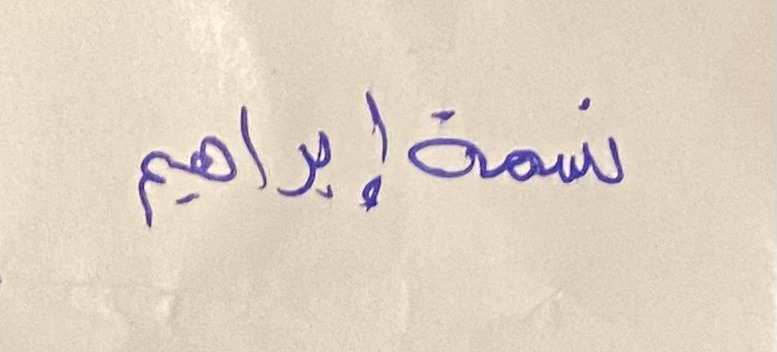 نسمة إبراهيم